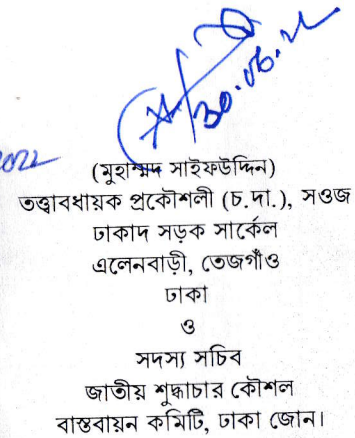 ৩০.০৬.২২
2022
(মুহাম্মদ সাইফউদ্দিন)
তত্ত্বাবধায়ক প্রকৌশলী (চ.দা.), সওজ
ঢাকাদ সড়ক সার্কেল
এলেনবাড়ী, তেজগাঁও
ঢাকা
ও
সদস্য সচিব
জাতীয় শুদ্ধাচার কৌশল
বাস্তবায়ন কমিটি, ঢাকা জোন।